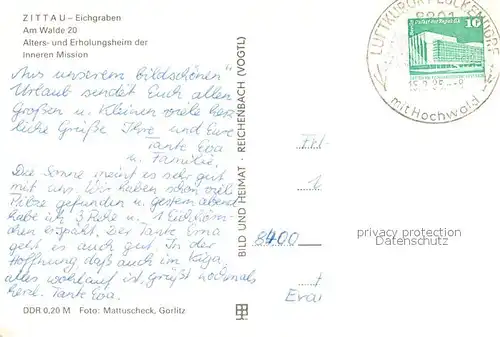 ZITTAU – Eichgraben
Am Walde 20
Alters- und Erholungsheim der
Inneren Mission
„Aus unserem bildschönen"
Urlaub sendet Euch allen
Großen u. Kleinen viele herz
liche Grüße Ihre und Eure
Tante Eva
u. Familie.
Die Sonne meint es sehr gut
mit uns. Wir haben schon viel
Pilze gefunden u. gestern abend
habe ich 3 Rehe u. 1 Eichhörn-
chen erspäht. Der Tante Erna
geht es auch gut. In der
Hoffnung daß auch im Kiga.
alles wohlauf ist, grüßt nochmals
herzl. Tante Eva.
DDR 0,20 M Foto: Mattuscheck, Görlitz
BILD UND HEIMAT · REICHENBACH (VOGTL)
LUFTKURORT LÜCKENDORF
mit Hochwald
10
8400
privacy protection
Datenschutz